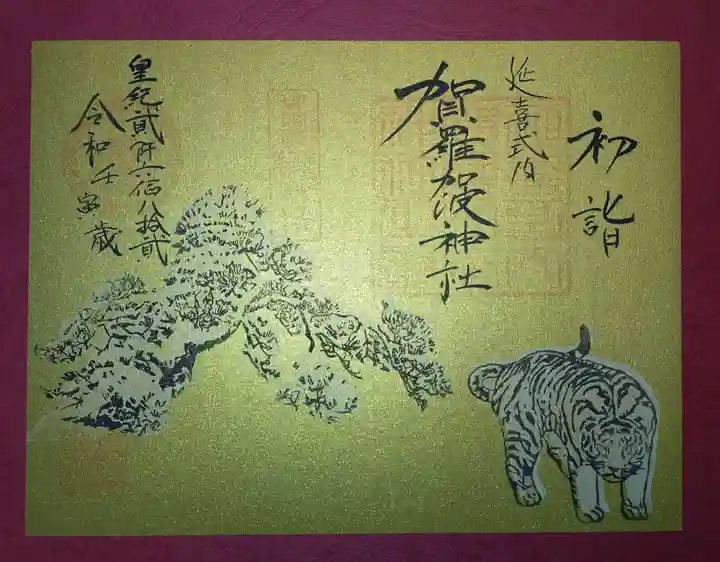 初詣
延喜式内
賀羅加波神社
皇紀貳仟六百八拾貳
令和壬寅歳